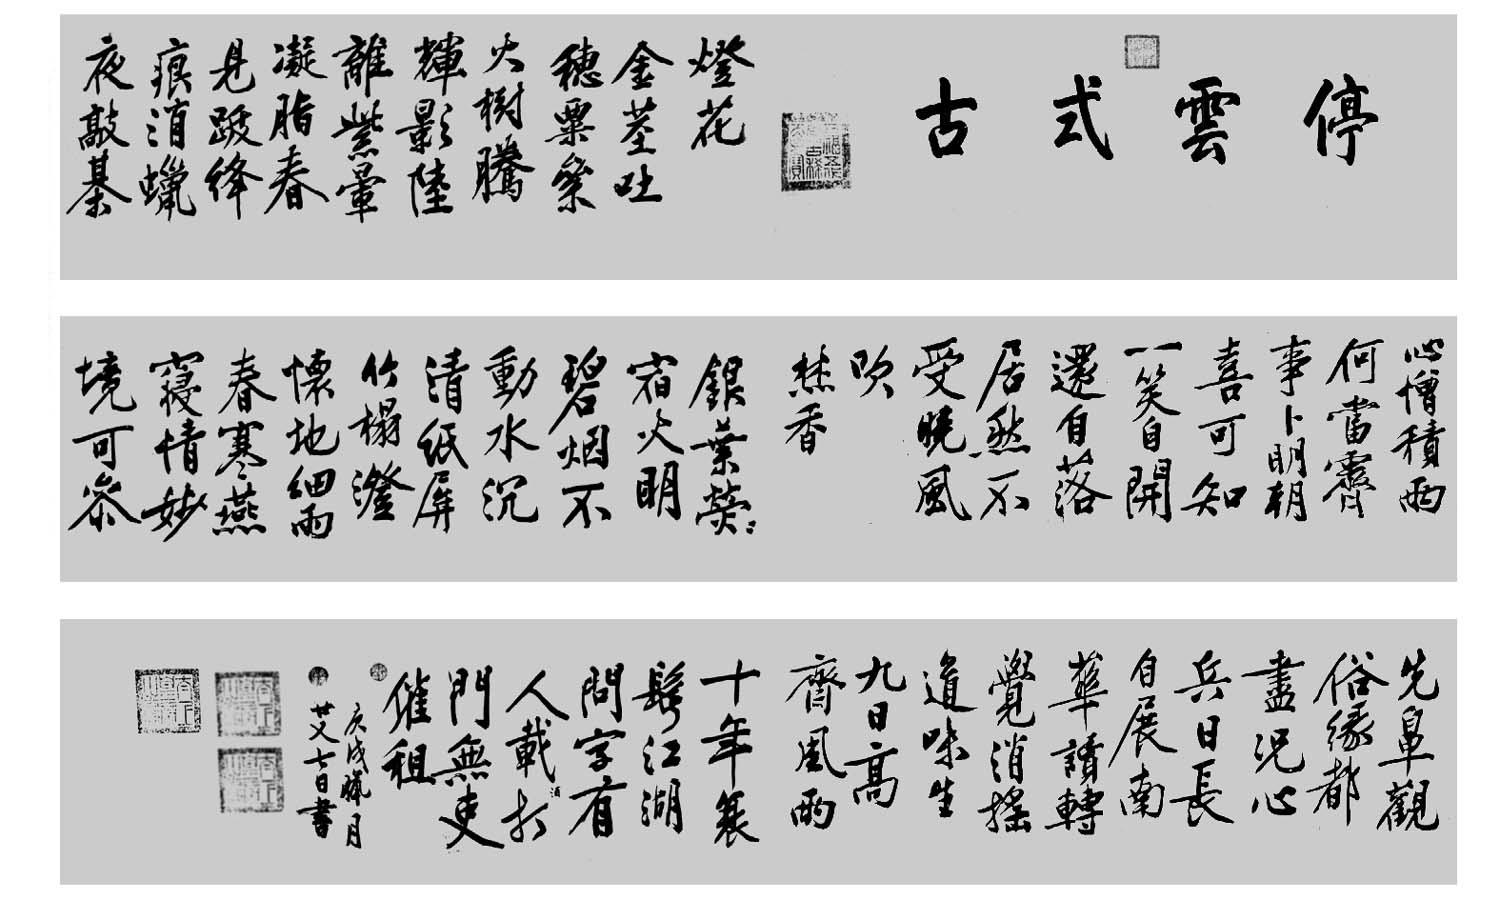 停雲式古
燈花
金莖吐
穗粟粲
火樹騰
輝影陸
離紫暈
凝脂春
見跋絳
痕消蠟
夜敲棊
心憎積雨
何當霽
事卜明朝
喜可知
一笑自開
還自落
居然不
受曉風
吹
焚香
銀葉熒〻
宿火明
碧烟不
動水沉
清紙屏
竹榻澄
懷地細雨
春寒燕
寢情妙
境可參
先臯觀
俗緣都
盡況心
兵日長
自展南
華讀轉
覺消搖
道味生
九日高
齊風雨
十年衰
鬢江湖
問字有
人載
酒
門無吏
催租
庚戌臘月
廿又七日書